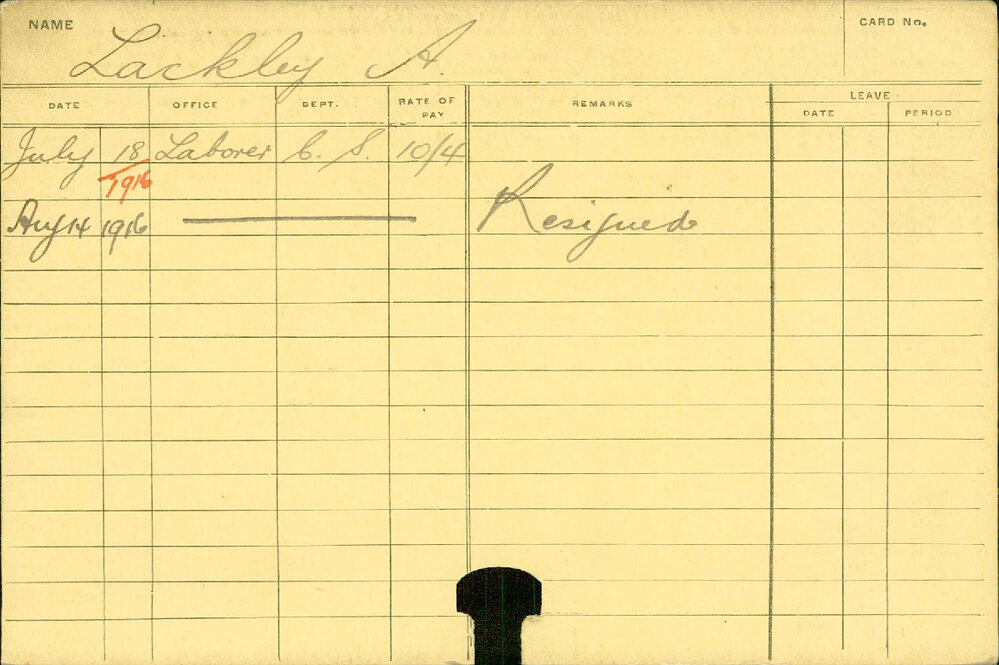 NAME Lackley A. CARD No.
DATE OFFICE DEPT. RATE OF PAY REMARKS LEAVE
DATE PERIOD
July 18 Laborer C. S. 10/4
1916
Aug 14 1916 Resigned